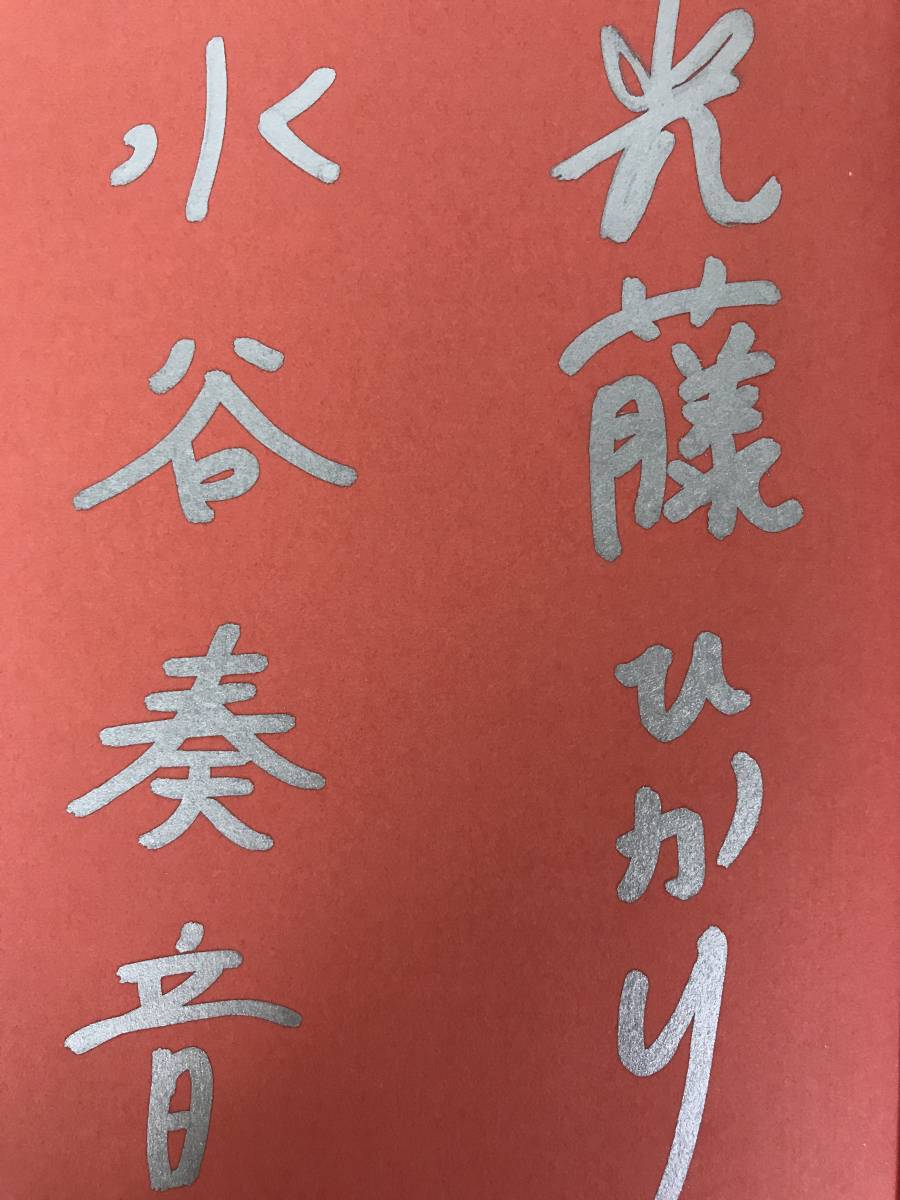 光藤ひかり
水谷奏音